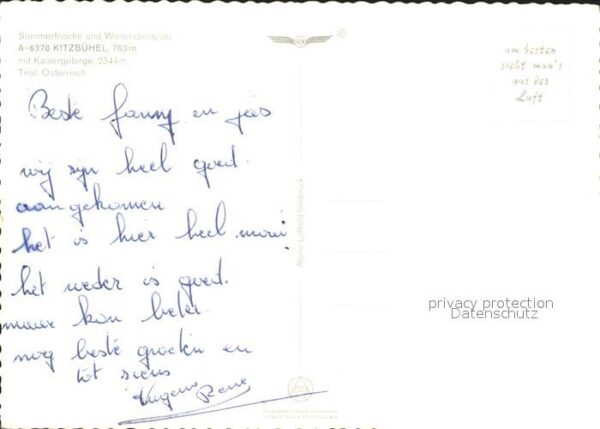 Sommerfrische und Wintersportplatz
A-6370 KITZBÜHEL, 763 m
mit Kaisergebirge, 2344 m
Tirol, Österreich
am besten
sieht man's
aus der
Luft
Beste Fanny en
wij zijn heel goed
aangekomen
het is hier heel mooi
het weder is goed.
maar kon beter
nog beste groeten en
tot ziens
Rene
Alpine Luftbild Innsbruck
privacy protection
Datenschutz